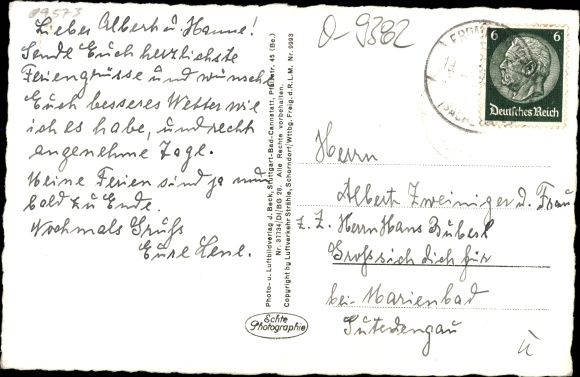 09573
Lieber Albert u. Hanne!
Sende Euch herzlichste
Feriengrüsse und wünsche
Euch besseres Wetter wie
ich es habe, und recht
angenehme Tage.
Meine Ferien sind ja nun
bald zu Ende.
Nochmals Gruß
Eure Lene.
Photo- u. Luftbildverlag J. Beck, Stuttgart-Bad-Cannstatt, Pfalzstr. 45 (Be.)
Nr. 37734/DI/BG 28. Alle Rechte vorbehalten.
Copyright by Luftverkehr Strähle, Schorndorf/Wittbg. Freig. d. R.L.M. Nr. 9993
Echte
Photographie
O-9382
6 6
Deutsches Reich
Herrn
Albert Zweiniger u. Frau
z. Z. Herrn Hans
Grosssichdichfür
bei Marienbad
Sudetengau